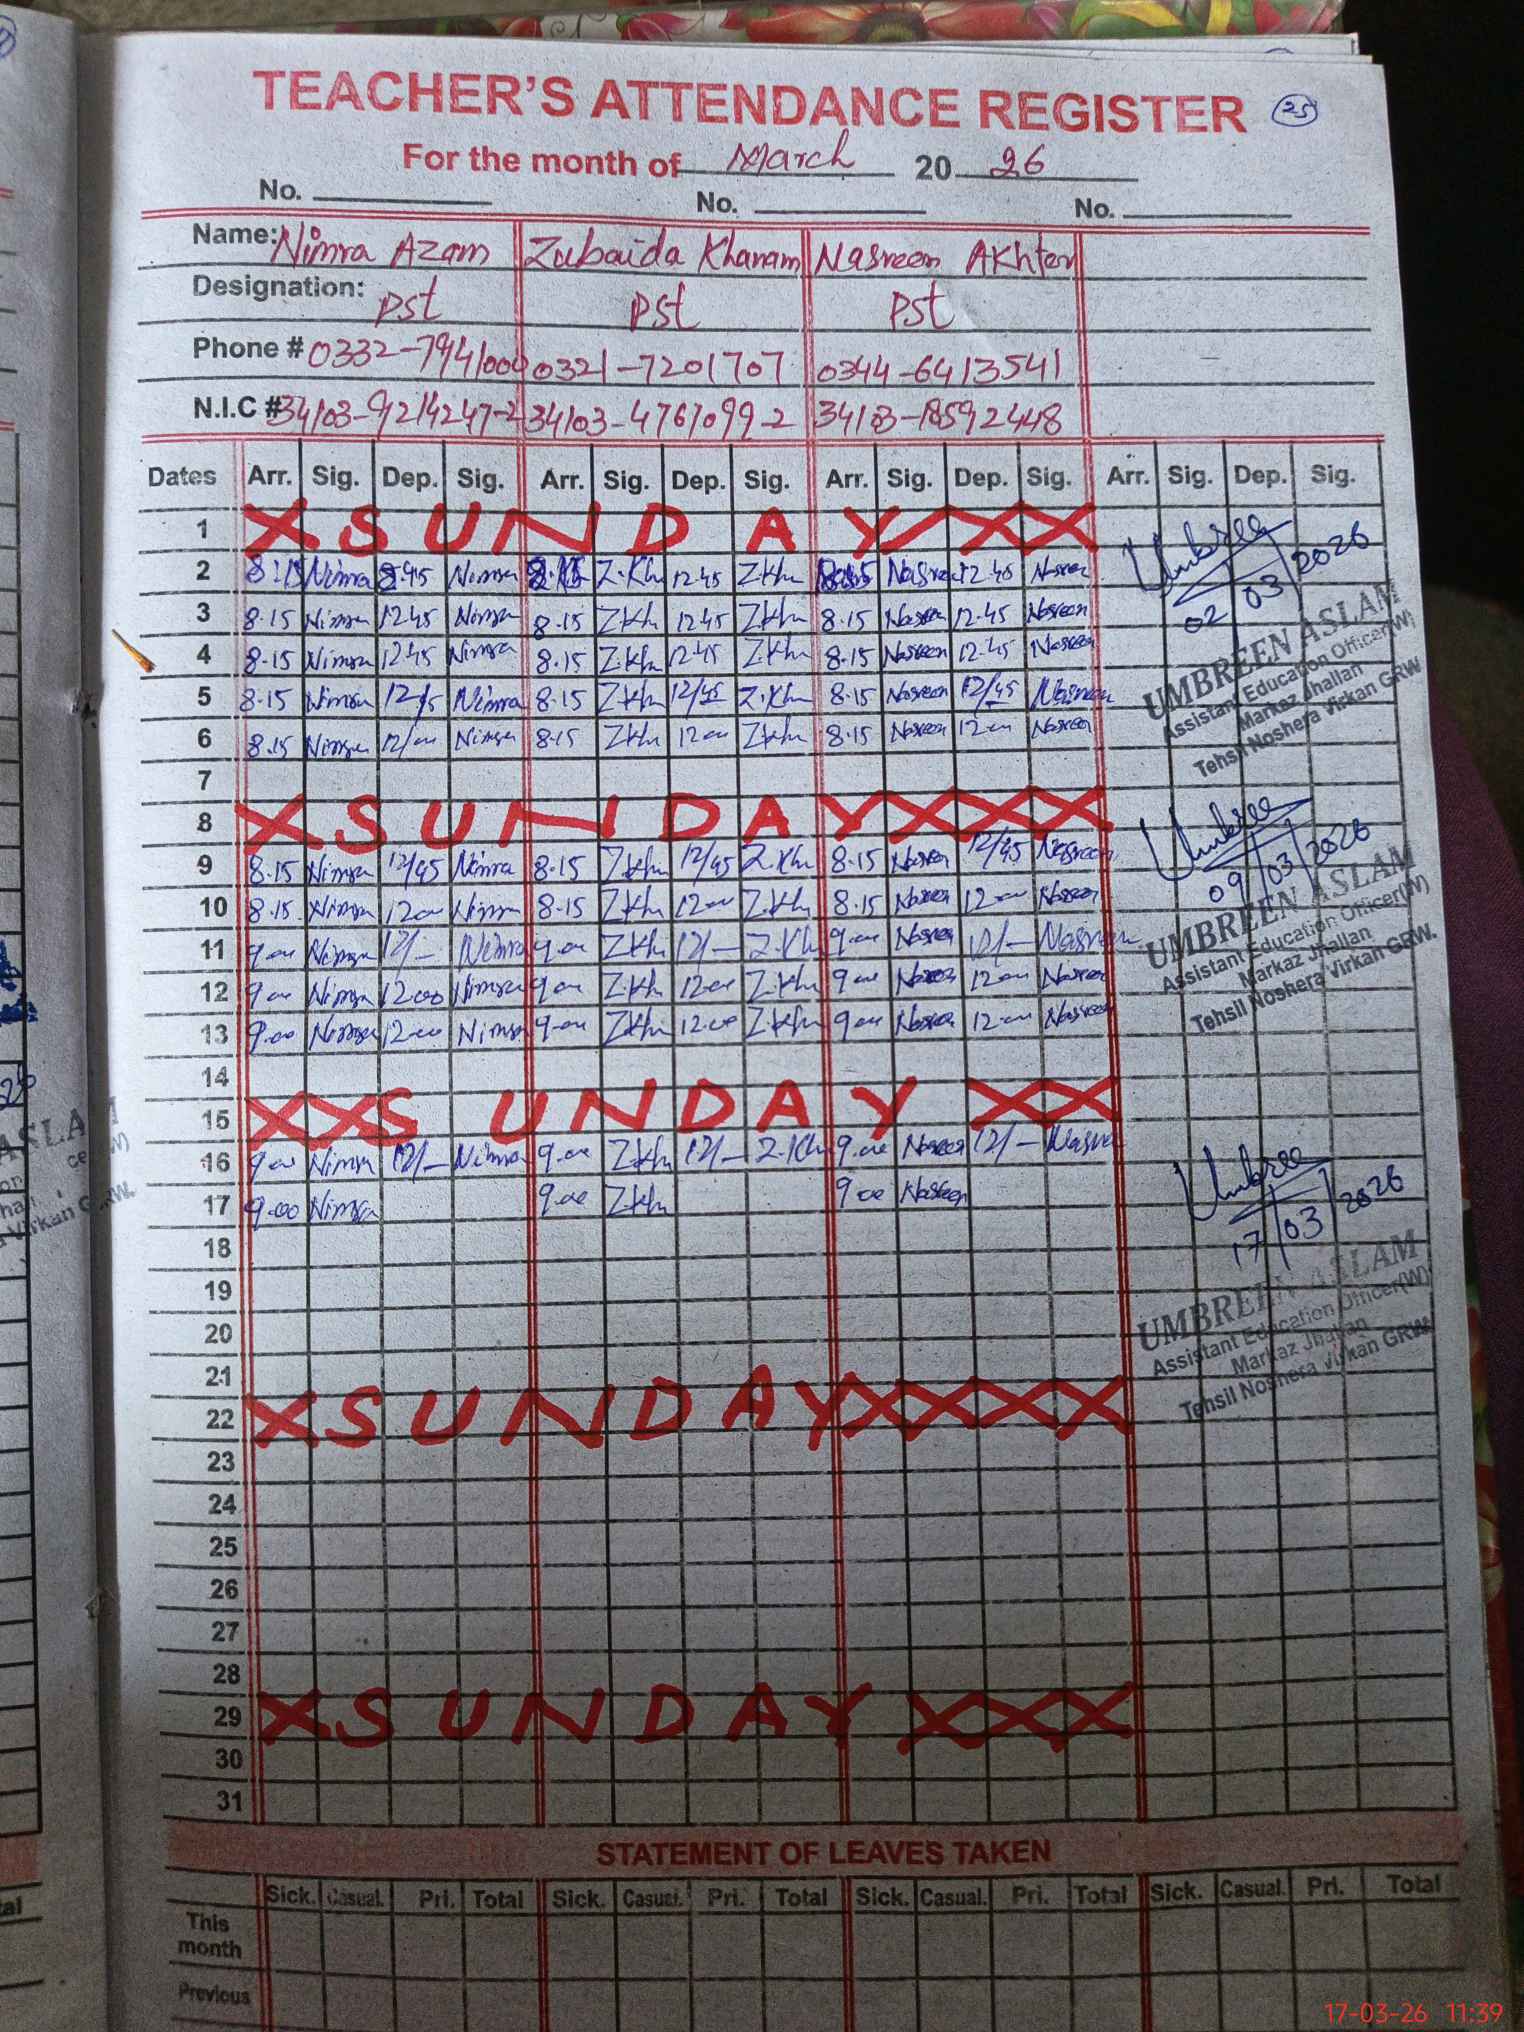 25
TEACHER'S ATTENDANCE REGISTER
For the month of March 20 26
No. No. No.
Name: Nimra Azam Zubaida Khanam Nasreen Akhter
Designation: Pst Pst Pst
Phone # 0332-7941000 0321-7201707 0344-6413541
N.I.C # 34103-9214247-2 34103-4767099-2 34103-18592448
Dates Arr. Sig. Dep. Sig. Arr. Sig. Dep. Sig. Arr. Sig. Dep. Sig. Arr. Sig. Dep. Sig.
1 X S U N D A Y X X X
2 8:15 Nimra 8.45 Nimra 8.15 Z.Kh 12.45 Z.Kh Nasreen 12.45 Nasreen
3 8.15 Nimra 12.45 Nimra 8.15 Z.Kh 12.45 Z.Kh 8.15 Nasreen 12.45 Nasreen
4 8.15 Nimra 12.45 Nimra 8.15 Z.Kh 12.45 Z.Kh 8.15 Nasreen 12.45 Nasreen
5 8.15 Nimra 12/45 Nimra 8.15 Z.Kh 12/45 Z.Kh 8.15 Nasreen 12/45 Nasreen
6 8.15 Nimra 12/00 Nimra 8.15 Z.Kh 12.00 Z.Kh 8.15 Nasreen 12.00 Nasreen
7
8 X S U N D A Y X X X X
9 8.15 Nimra 12/45 Nimra 8.15 Z.Kh 12/45 Z.Kh 8.15 Nasreen 12/45 Nasreen
10 8.15 Nimra 12.00 Nimra 8.15 Z.Kh 12.00 Z.Kh 8.15 Nasreen 12.00 Nasreen
11 9.00 Nimra 12/- Nimra 9.00 Z.Kh 12/- Z.Kh 9.00 Nasreen 12/- Nasreen
12 9.00 Nimra 12.00 Nimra 9.00 Z.Kh 12.00 Z.Kh 9.00 Nasreen 12.00 Nasreen
13 9.00 Nimra 12.00 Nimra 9.00 Z.Kh 12.00 Z.Kh 9.00 Nasreen 12.00 Nasreen
14
15 X X S U N D A Y X X
16 9.00 Nimra 12/- Nimra 9.00 Z.Kh 12/- Z.Kh 9.00 Nasreen 12/- Nasreen
17 9.00 Nimra 9.00 Z.Kh 9.00 Nasreen
18
19
20
21
22 X S U N D A Y X X X X
23
24
25
26
27
28
29 X S U N D A Y X X X
30
31
Umbreen
02/03/2026
UMBREEN ASLAM
Assistant Education Officer(W)
Markaz Jhallan
Tehsil Noshera Virkan GRW
Umbreen
09/03/2026
UMBREEN ASLAM
Assistant Education Officer(W)
Markaz Jhallan
Tehsil Noshera Virkan GRW.
Umbreen
17/03/2026
UMBREEN ASLAM
Assistant Education Officer(W)
Markaz Jhallan
Tehsil Noshera Virkan GRW.
STATEMENT OF LEAVES TAKEN
Sick. Casual. Pri. Total Sick. Casual. Pri. Total Sick. Casual. Pri. Total Sick. Casual. Pri. Total
This
month
Previous
17-03-26 11:39